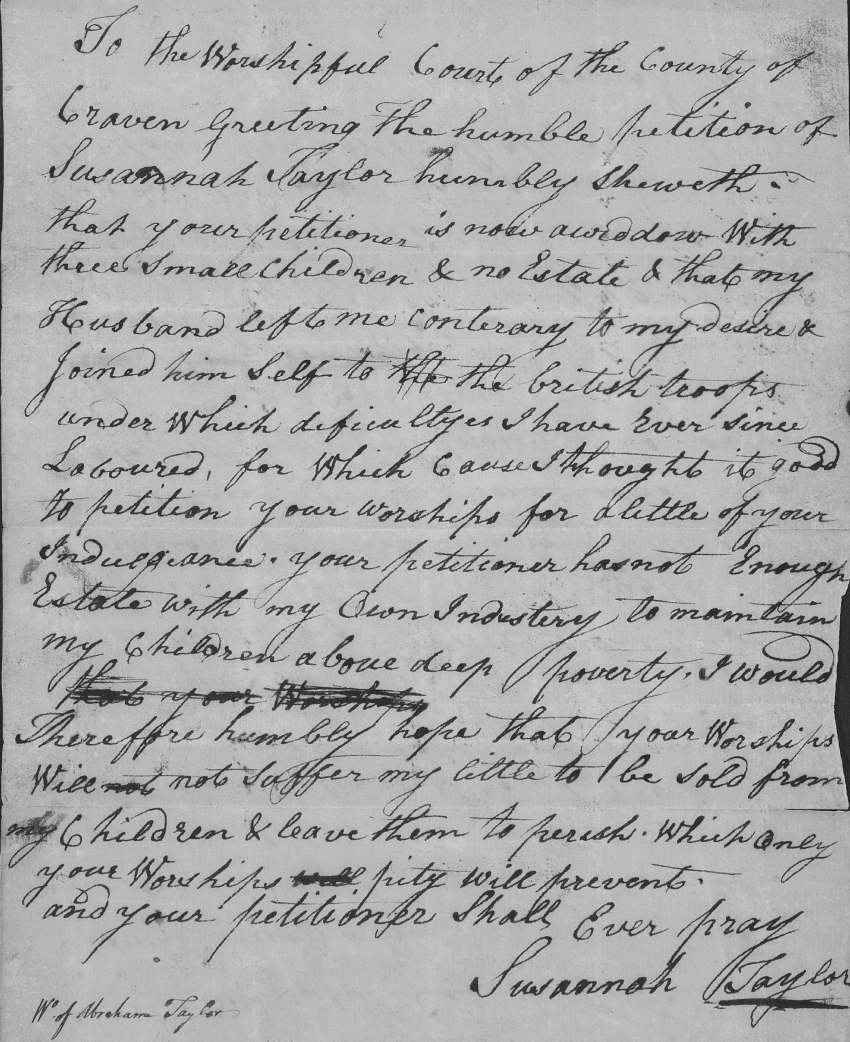 To the Worshipful Court of the County of
Craven Greeting The humble petition of
Susannah Taylor humbly Sheweth.
that your petitioner is now a widdow With
three Small Children & no Estate & that my
Husband left me conterary to my desire &
Joined him Self to the the british troops
under Which dificultyes I have Ever since
Laboured, for Which Cause I thought it good
to petition your worships for a little of your
Indulgeance. your petitioner has not Enough
Estate with my Own Industery to maintain
my Children above deep poverty. I would
that your Worships
Therefore humbly hope that your Worships
Will not not Suffer my little to be Sold from
my Children & leave them to perish. Which only
your Worships will pity will prevent.
and your petitioner Shall Ever pray
Susannah Taylor
Wo. of Abraham Taylor